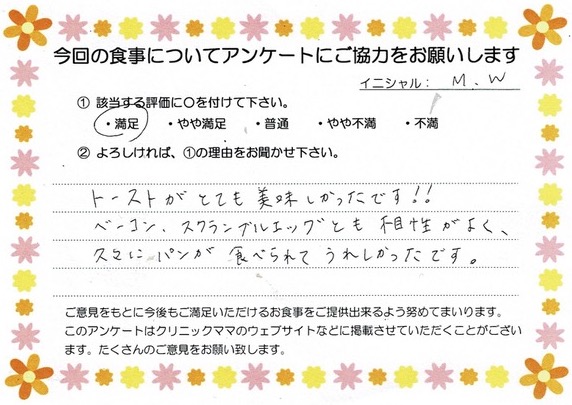 今回の食事についてアンケートにご協力をお願いします
イニシャル： M.W
① 該当する評価に〇を付けて下さい。
・満足 ・やや満足 ・普通 ・やや不満 ・不満
② よろしければ、①の理由をお聞かせ下さい。
トーストがとても美味しかったです!!
ベーコン、スクランブルエッグとも相性がよく、
久々にパンが食べられてうれしかったです。
ご意見をもとに今後もご満足いただけるお食事をご提供出来るよう努めてまいります。
このアンケートはクリニックママのウェブサイトなどに掲載させていただくことがござい
ます。たくさんのご意見をお願い致します。